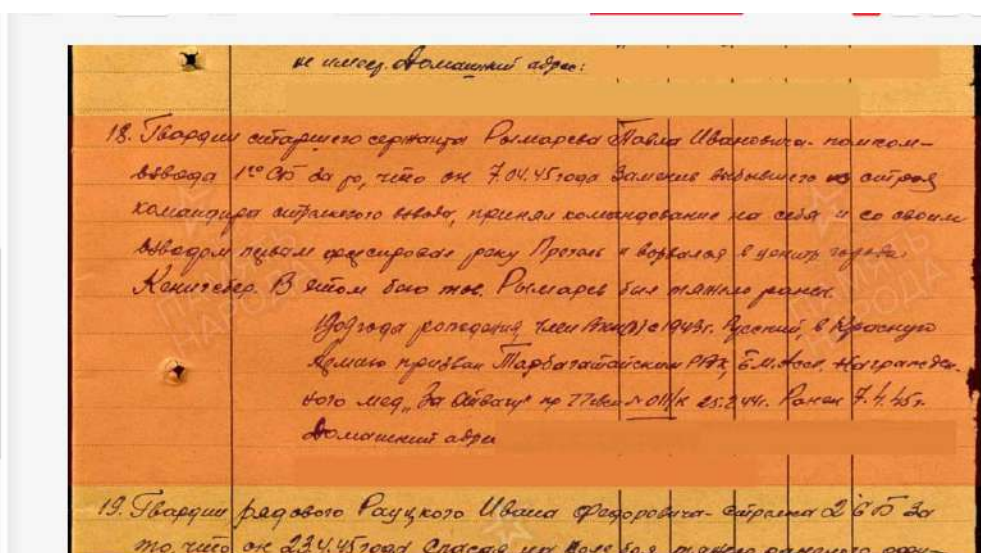 не имеет. Домашний адрес:
18. Гвардии старшего сержанта Рымарева Павла Ивановича - помком-
взвода 1го СБ за то, что он 7.04.45 года заменив выбывшего из строя
командира стрелкового взвода, принял командование на себя и со своим
взводом первым форсировал реку Прегель и ворвался в центр города
Кенигсберг. В этом бою тов. Рымарев был тяжело ранен.
1909 года рождения, член ВКП(б) с 1943г. Русский, в Красную
Армию призван Тарбагатайским РВК, Б.М.Асср. Награжден-
ного мед. "За Отвагу" пр 77 № 011/н 25.2.44г. Ранен 7.4.45г.
Домашний адрес
19. Гвардии рядового Рауцкого Ивана Федоровича - стрелка 2 СБ за
то, что он 23.4.45 года спасая на поле боя тяжело раненого
ПАМЯТЬ НАРОДА
ПАМЯТЬ НАРОДА